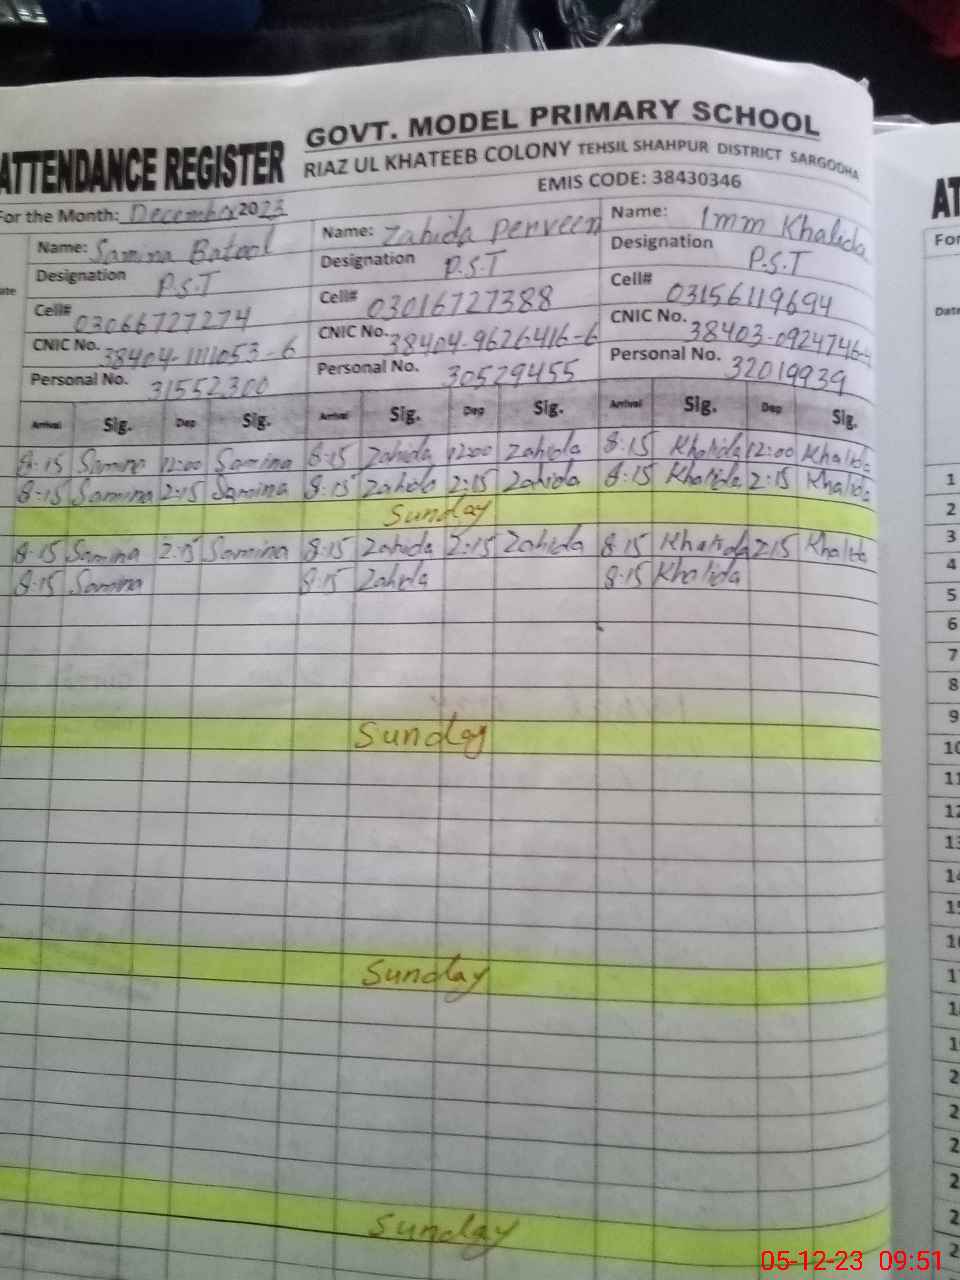 GOVT. MODEL PRIMARY SCHOOL
ATTENDANCE REGISTER RIAZ UL KHATEEB COLONY TEHSIL SHAHPUR DISTRICT SARGODHA
EMIS CODE: 38430346
For the Month: December 2023
Name: Samina Batool Name: Zahida Perveen Name: Imm Khalida
Designation P.S.T Designation P.S.T Designation P.S.T
Cell# 03066727274 Cell# 03016727388 Cell# 03156119694
CNIC No. 38404-1111053-6 CNIC No. 38404-9626416-6 CNIC No. 38403-0924746-4
Personal No. 31552300 Personal No. 30529455 Personal No. 32019939
Arrival Sig. Dep Sig. Arrival Sig. Dep Sig. Arrival Sig. Dep Sig.
8:15 Samina 12:00 Samina 8:15 Zahida 12:00 Zahida 8:15 Khalida 12:00 Khalida
8:15 Samina 2:15 Samina 8:15 Zahida 2:15 Zahida 8:15 Khalida 2:15 Khalida
Sunday
8:15 Samina 2:15 Samina 8:15 Zahida 2:15 Zahida 8:15 Khalida 2:15 Khalida
8:15 Samina 8:15 Zahida 8:15 Khalida
Sunday
Sunday
Sunday
AT
For
Date
1
2
3
4
5
6
7
8
9
10
11
12
13
14
15
16
17
05-12-23 09:51